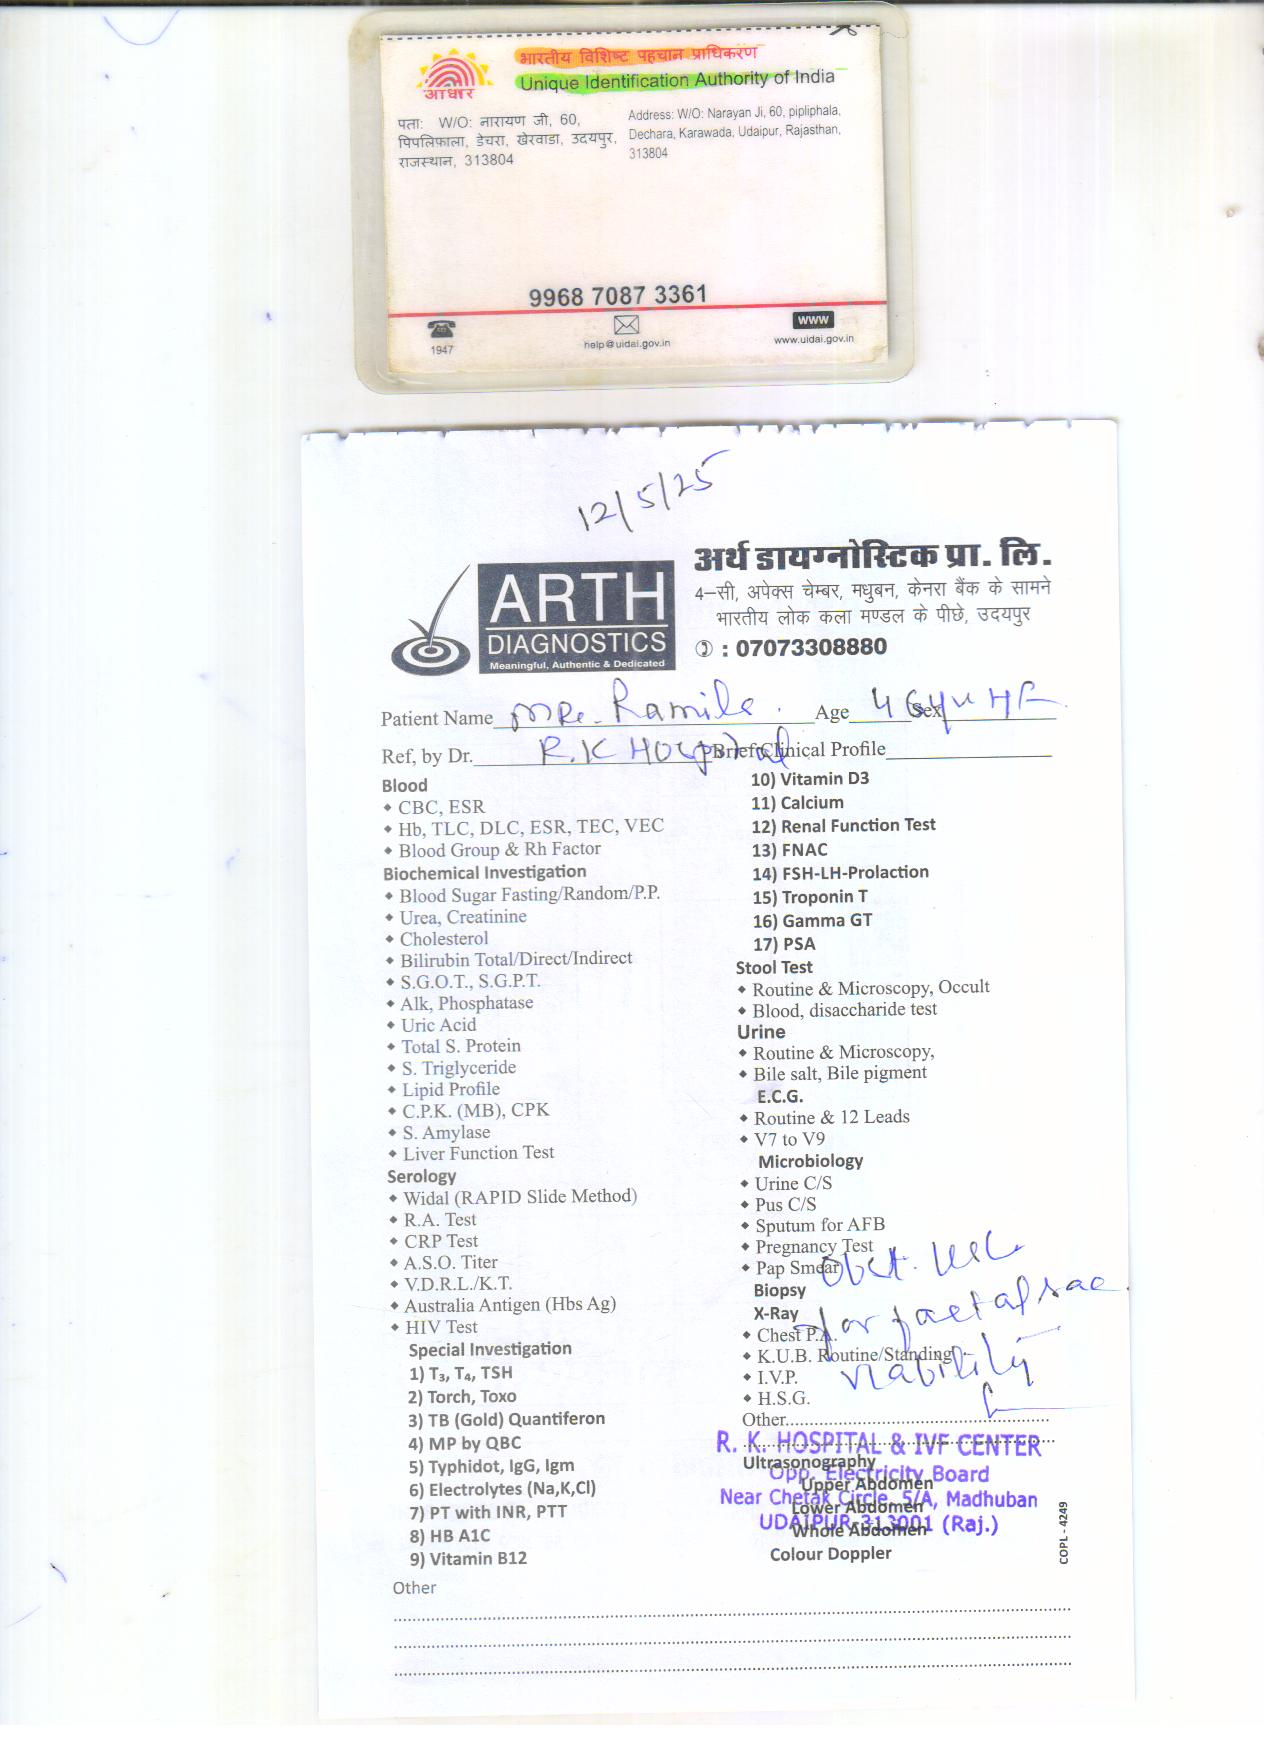 आधार
भारतीय विशिष्ट पहचान प्राधिकरण
Unique Identification Authority of India
पता: W/O: नारायण जी, 60,
पिपलिफ़ाला, डेचरा, खेरवाडा, उदयपुर,
राजस्थान, 313804
Address: W/O: Narayan Ji, 60, pipliphala,
Dechara, Karawada, Udaipur, Rajasthan,
313804
9968 7087 3361
1947
help@uidai.gov.in
WWW
www.uidai.gov.in
12/5/25
ARTH
DIAGNOSTICS
Meaningful, Authentic & Dedicated
अर्थ डायग्नोस्टिक प्रा. लि.
4–सी, अपेक्स चेम्बर, मधुबन, केनरा बैंक के सामने
भारतीय लोक कला मण्डल के पीछे, उदयपुर
: 07073308880
Patient Name Ramila Age 46 Sex
Ref, by Dr. R.K Hospital Brief Clinical Profile
Blood
CBC, ESR
Hb, TLC, DLC, ESR, TEC, VEC
Blood Group & Rh Factor
Biochemical Investigation
Blood Sugar Fasting/Random/P.P.
Urea, Creatinine
Cholesterol
Bilirubin Total/Direct/Indirect
S.G.O.T., S.G.P.T.
Alk, Phosphatase
Uric Acid
Total S. Protein
S. Triglyceride
Lipid Profile
C.P.K. (MB), CPK
S. Amylase
Liver Function Test
Serology
Widal (RAPID Slide Method)
R.A. Test
CRP Test
A.S.O. Titer
V.D.R.L./K.T.
Australia Antigen (Hbs Ag)
HIV Test
Special Investigation
1) T₃, T₄, TSH
2) Torch, Toxo
3) TB (Gold) Quantiferon
4) MP by QBC
5) Typhidot, IgG, Igm
6) Electrolytes (Na,K,Cl)
7) PT with INR, PTT
8) HB A1C
9) Vitamin B12
10) Vitamin D3
11) Calcium
12) Renal Function Test
13) FNAC
14) FSH-LH-Prolaction
15) Troponin T
16) Gamma GT
17) PSA
Stool Test
Routine & Microscopy, Occult
Blood, disaccharide test
Urine
Routine & Microscopy,
Bile salt, Bile pigment
E.C.G.
Routine & 12 Leads
V7 to V9
Microbiology
Urine C/S
Pus C/S
Sputum for AFB
Pregnancy Test
Pap Smear
Biopsy
X-Ray
Chest P.A.
K.U.B. Routine/Standing
I.V.P.
H.S.G.
Other
Obst.
for
viability
R. K. HOSPITAL & IVF CENTER
Opp. Electricity Board
Near Chetak Circle, 5/A, Madhuban
UDAIPUR-313001 (Raj.)
Ultrasonography
Upper Abdomen
Lower Abdomen
Whole Abdomen
Colour Doppler
COPL - 4249
Other